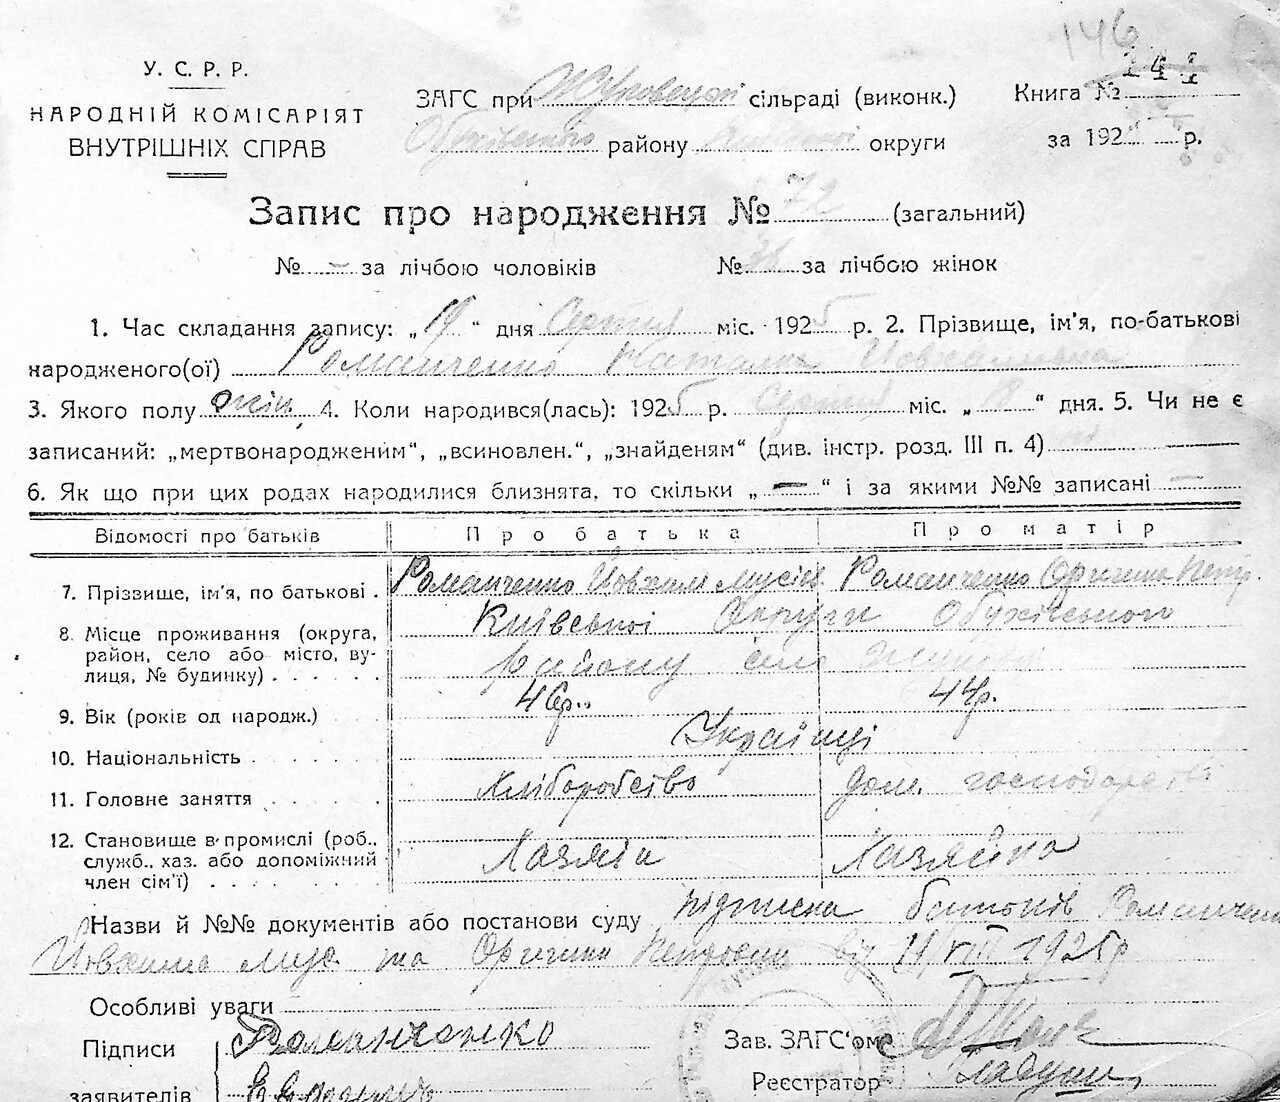 146
У. С. Р. Р.
НАРОДНІЙ КОМІСАРІЯТ
ВНУТРІШНІХ СПРАВ
ЗАГС при сільраді (виконк.)
Книга № 141
району округи
за 192 р.
Запис про народження № 72 (загальний)
№ – за лічбою чоловіків № за лічбою жінок
1. Час складання запису: „19“ дня Серпня міс. 1925 р. 2. Прізвище, ім'я, по-батькові
народженого(ої) Романченко Наталка Йовхимівна
3. Якого полу жін. 4. Коли народився(лась): 1925 р. Серпня міс. „18“ дня. 5. Чи не є
записаний: „мертвонародженим“, „всиновлен.“, „знайденям“ (див. інстр. розд. III п. 4)
6. Як що при цих родах народилися близнята, то скільки „—“ і за якими №№ записані —
Відомості про батьків Про батька Про матір
7. Прізвище, ім'я, по батькові . Романченко Йовхим Мусієв. Романченко Оришка Петр.
8. Місце проживання (округа, район, село або місто, вулиця, № будинку) . . . . . . Київської Округи Обухівського
району село
9. Вік (років од народж.) 46р. 44р.
10. Національність . . . . . . Українці
11. Головне заняття . . . . . Хліборобство Дом. господарст
12. Становище в промислі (роб., служб., хаз. або допоміжний член сім'ї) . . . . . . . Хазяїн Хазяйка
Назви й №№ документів або постанови суду підписка батьків Романченко
Йовхима Мус. та Оришки Петровни від 19/VIII 1925р
Особливі уваги
Підписи Романченко Зав. ЗАГС'ом
заявителів Реєстратор